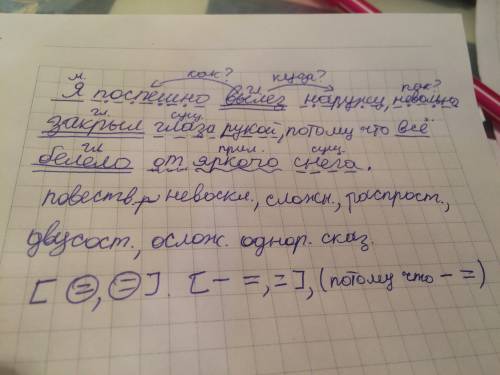 м. как? гл. куда? как?
Я поспешно вылез наружу, невольно
гл. сущ.
закрыл глаза рукой, потому что всё
гл прил. сущ.
белело от яркого снега.
повеств., невоскл., сложн., распрост.,
двусост., ослож. однор. сказ.
[=, =]. [- =, =], (потому что - =)